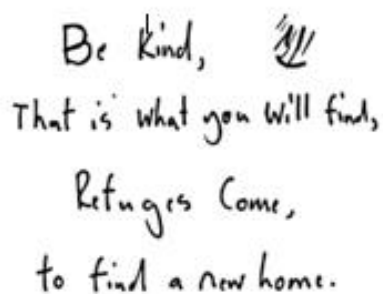 Be kind,
That is what you will find,
Refuges Come,
to find a new home.